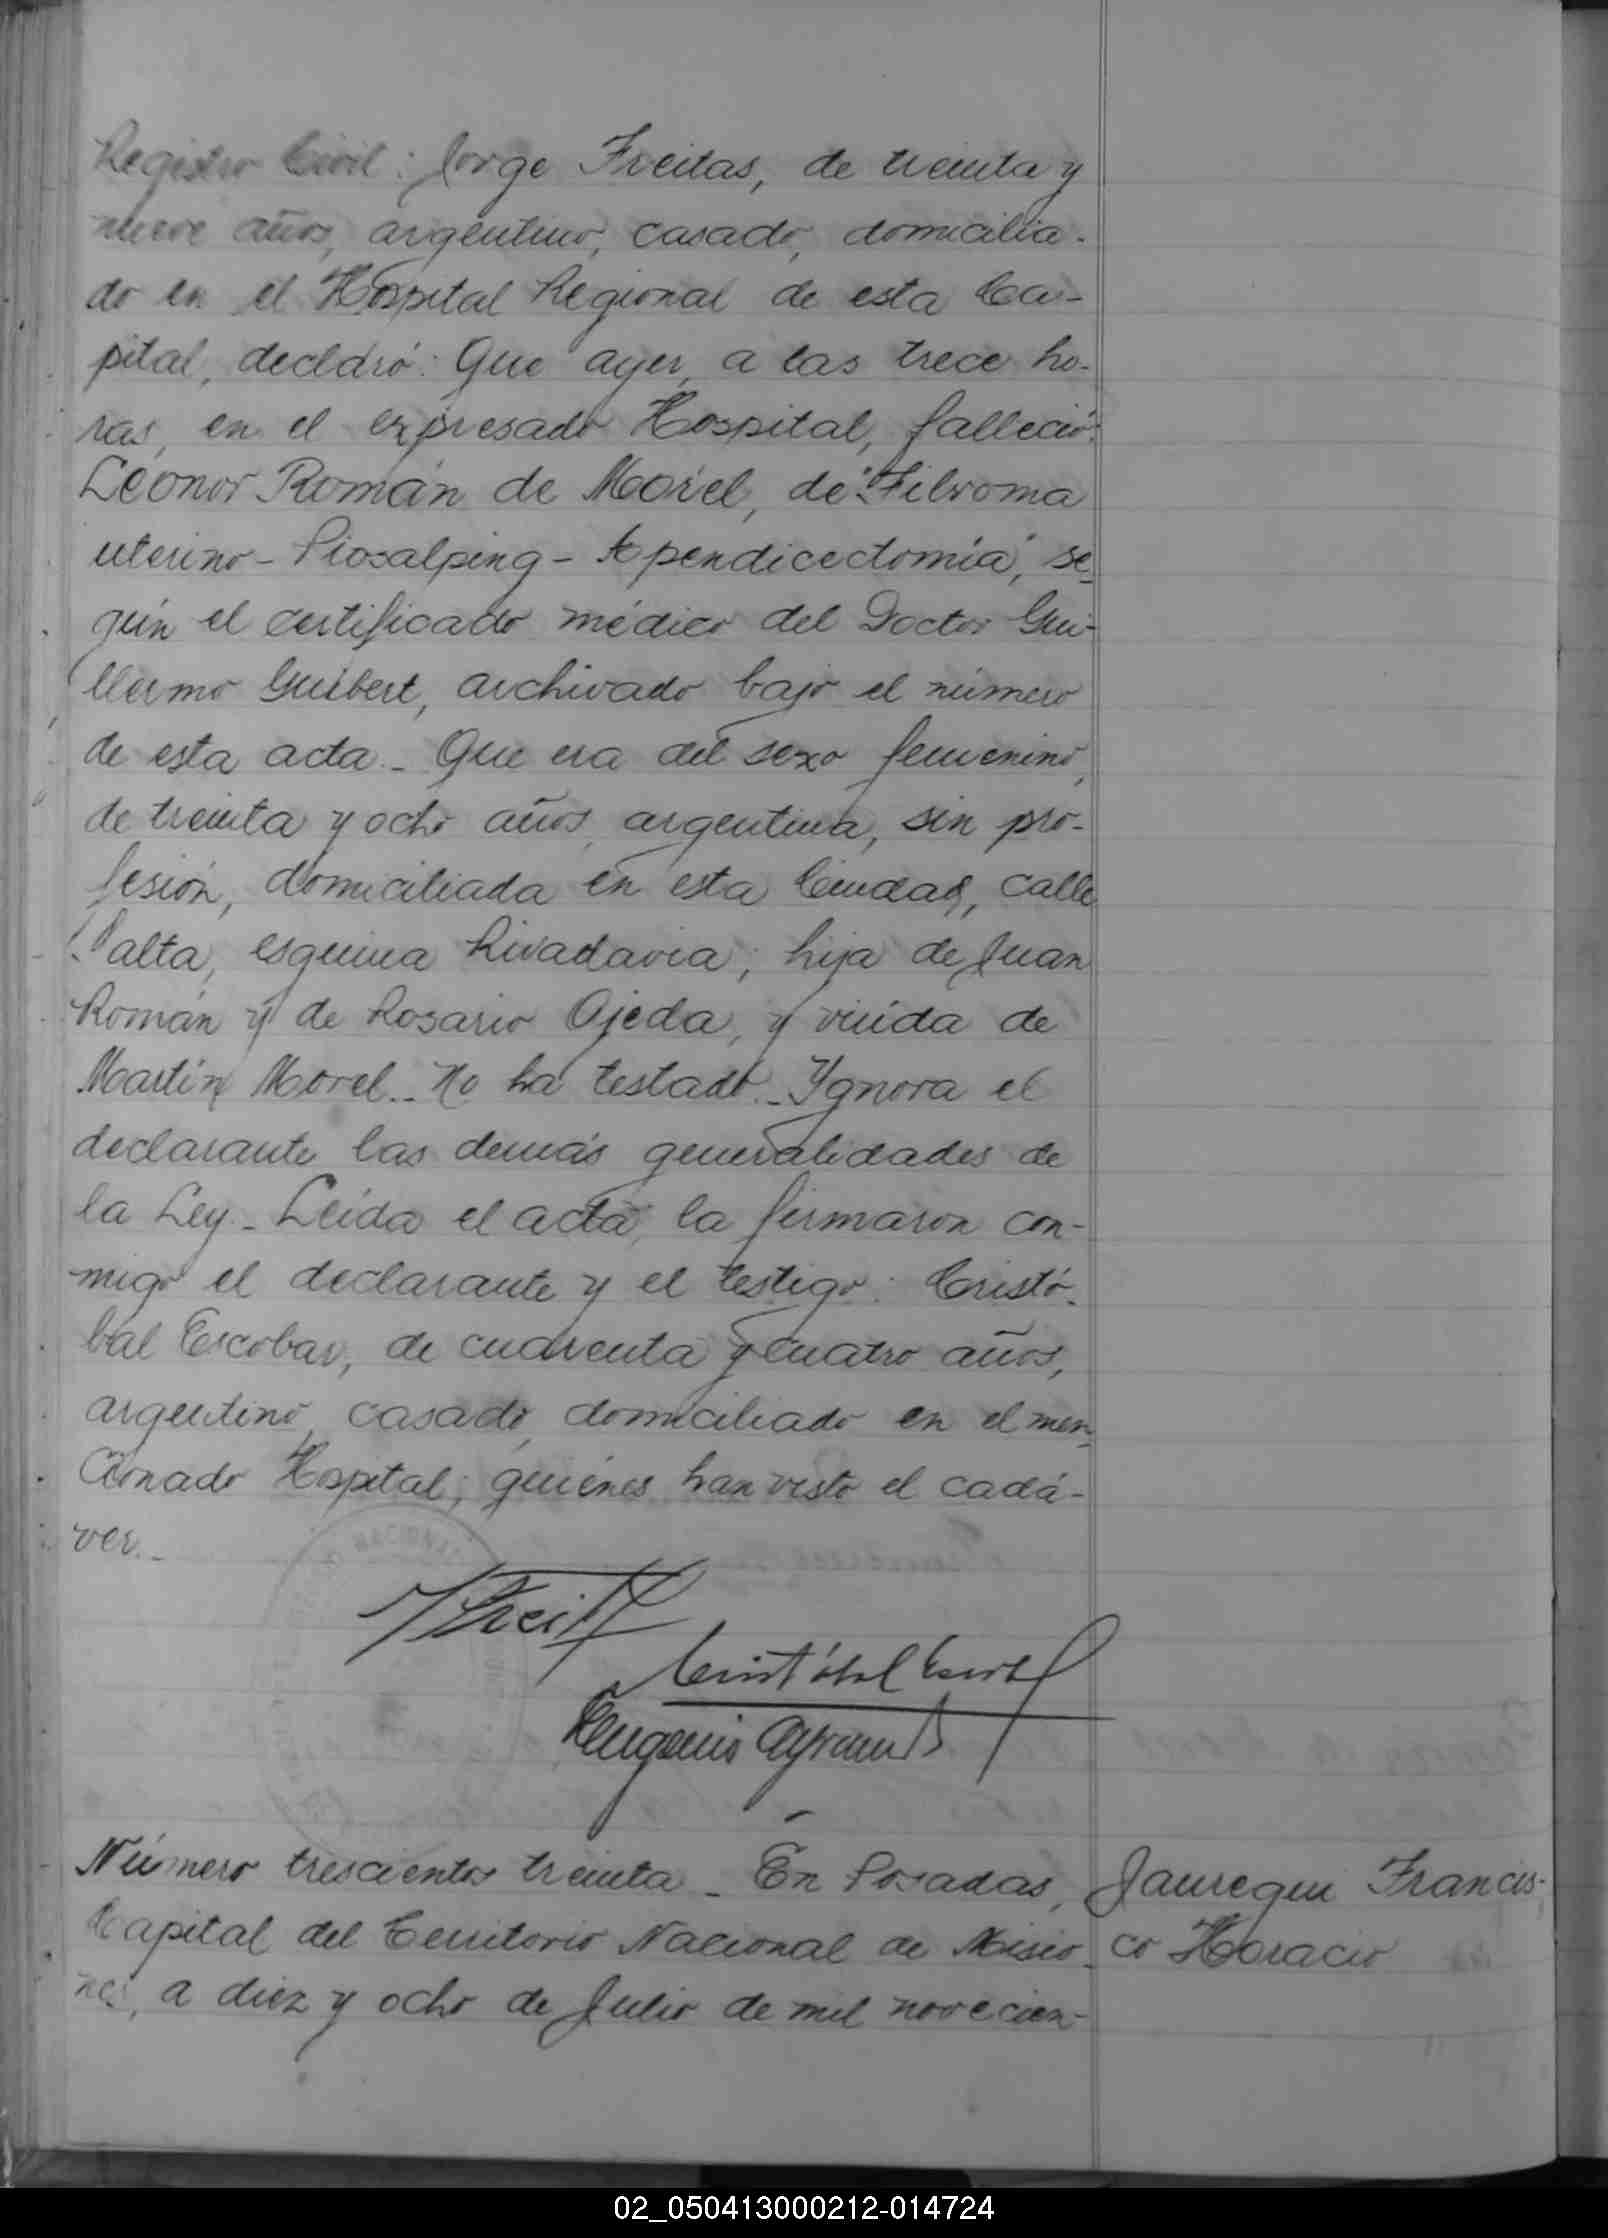 Registro Civil: Jorge Freitas, de treinta y
nueve años, argentino, casado, domicilia-
do en el Hospital Regional de esta Ca-
pital, declaró: Que ayer, a las trece ho-
ras, en el expresado Hospital, falleció:
Leonor Román de Morel, de "Filroma
uterino - Piosalping - Apendicectomía", se-
gún el certificado médico del Doctor Gui-
llermo Guibert, archivado bajo el número
de esta acta.- Que era del sexo femenino,
de treinta y ocho años, argentina, sin pro-
fesión, domiciliada en esta Ciudad, calle
Salta, esquina Rivadavia; hija de Juan
Román y de Rosario Ojeda, y viuda de
Martin Morel.- No ha testado.- Ygnora el
declarante las demás generalidades de
la Ley.- Leida el acta, la firmaron con-
migo el declarante y el testigo: Cristó-
bal Escobar, de cuarenta y cuatro años,
argentino, casado, domiciliado en el men-
cionado Hospital; quiénes han visto el cadá-
ver.-
Cristóbal Escobar
Eugenio
Número trescientos treinta - En Posadas,
Capital del Territorio Nacional de Misio-
nes, a diez y ocho de Julio de mil novecien-
Jauregui Francis-
co Horacio
02_050413000212-014724